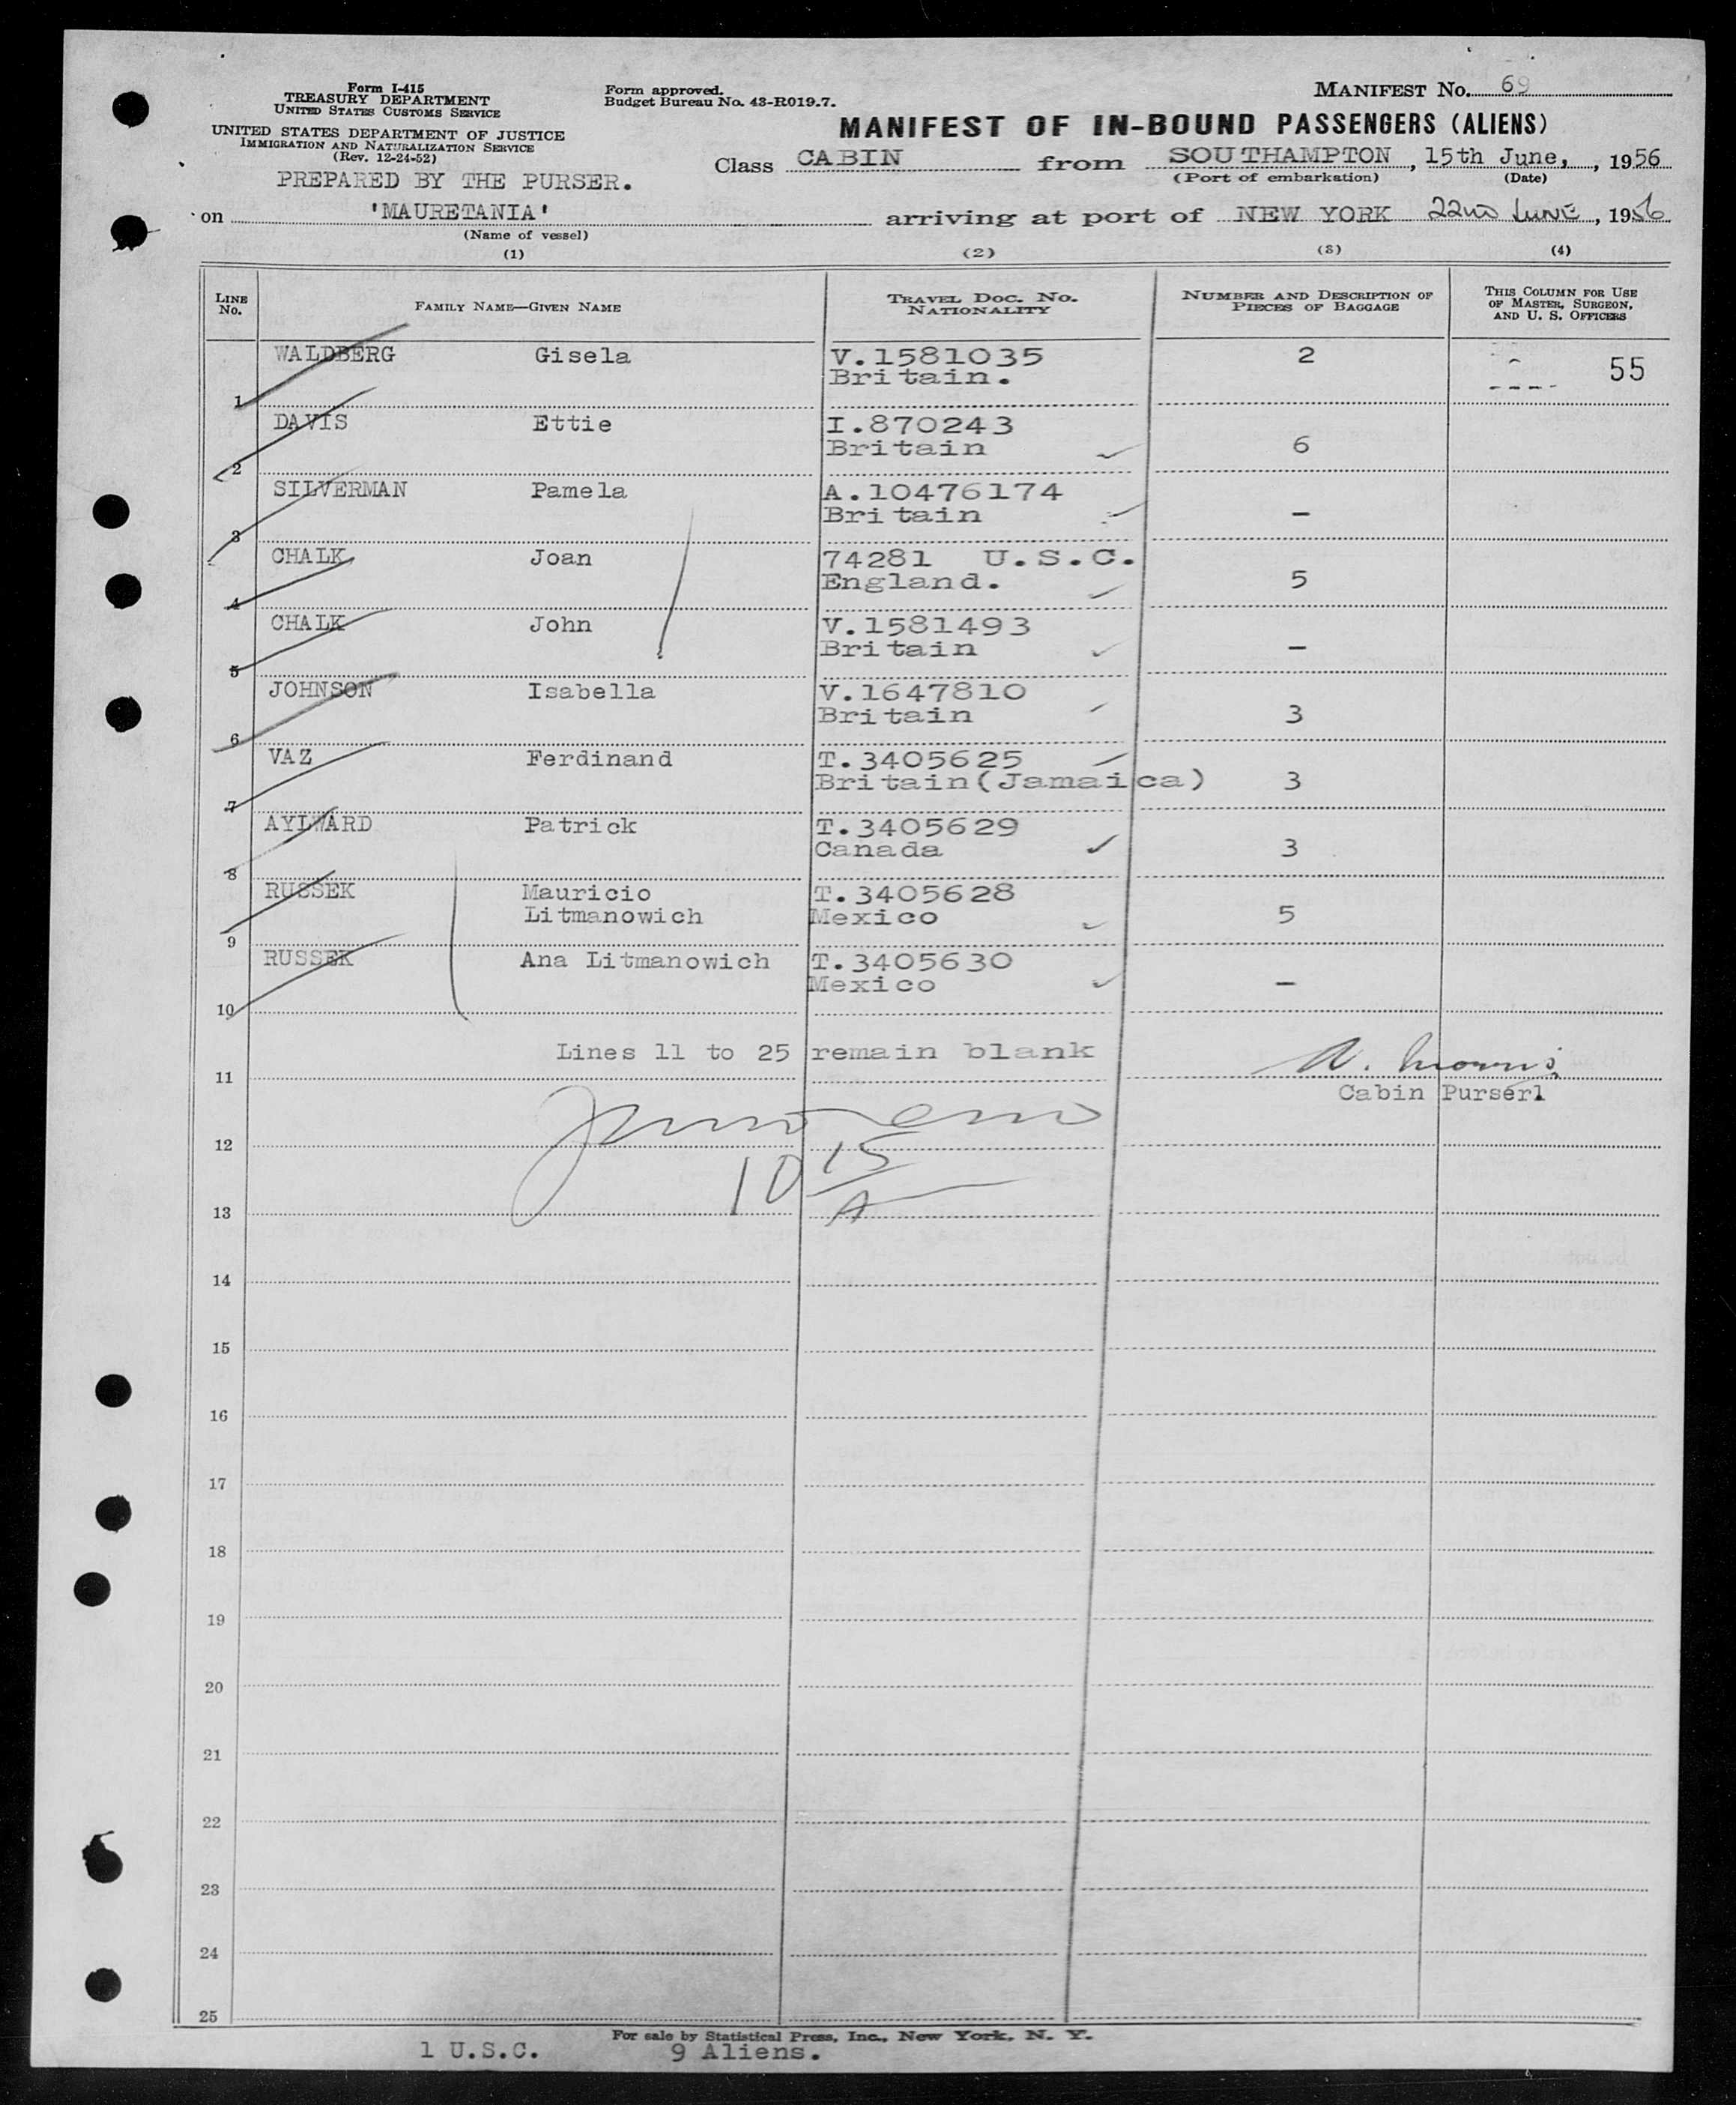 Form I-415
TREASURY DEPARTMENT
UNITED STATES CUSTOMS SERVICE
UNITED STATES DEPARTMENT OF JUSTICE
IMMIGRATION AND NATURALIZATION SERVICE
(Rev. 12-24-52)
PREPARED BY THE PURSER.
Form approved.
Budget Bureau No. 43-R019.7.
MANIFEST NO. 69
MANIFEST OF IN-BOUND PASSENGERS (ALIENS)
Class CABIN from SOUTHAMPTON, 15th June, , 1956
(Port of embarkation) (Date)
on 'MAURETANIA' arriving at port of NEW YORK 22ND JUNE, 1956
(Name of vessel)
(1) (2) (3) (4)
LINE NO. FAMILY NAME—GIVEN NAME TRAVEL DOC. NO. NATIONALITY NUMBER AND DESCRIPTION OF PIECES OF BAGGAGE THIS COLUMN FOR USE OF MASTER, SURGEON, AND U. S. OFFICERS
WALDBERG Gisela V.1581035 2 55
Britain.
1
DAVIS Ettie I.870243
Britain 6
2
SILVERMAN Pamela A.10476174
Britain –
3
CHALK Joan 74281 U.S.C.
England. 5
4
CHALK John V.1581493
Britain –
5
JOHNSON Isabella V.1647810
Britain 3
6
VAZ Ferdinand T.3405625
Britain(Jamaica) 3
7
AYLWARD Patrick T.3405629
Canada 3
8
RUSSEK Mauricio T.3405628
Litmanowich Mexico 5
9
RUSSEK Ana Litmanowich T.3405630
Mexico –
10
Lines 11 to 25 remain blank
11
Cabin Purser1
12
10 15
A
13
14
15
16
17
18
19
20
21
22
23
24
25
For sale by Statistical Press, Inc., New York, N. Y.
1 U.S.C. 9 Aliens.